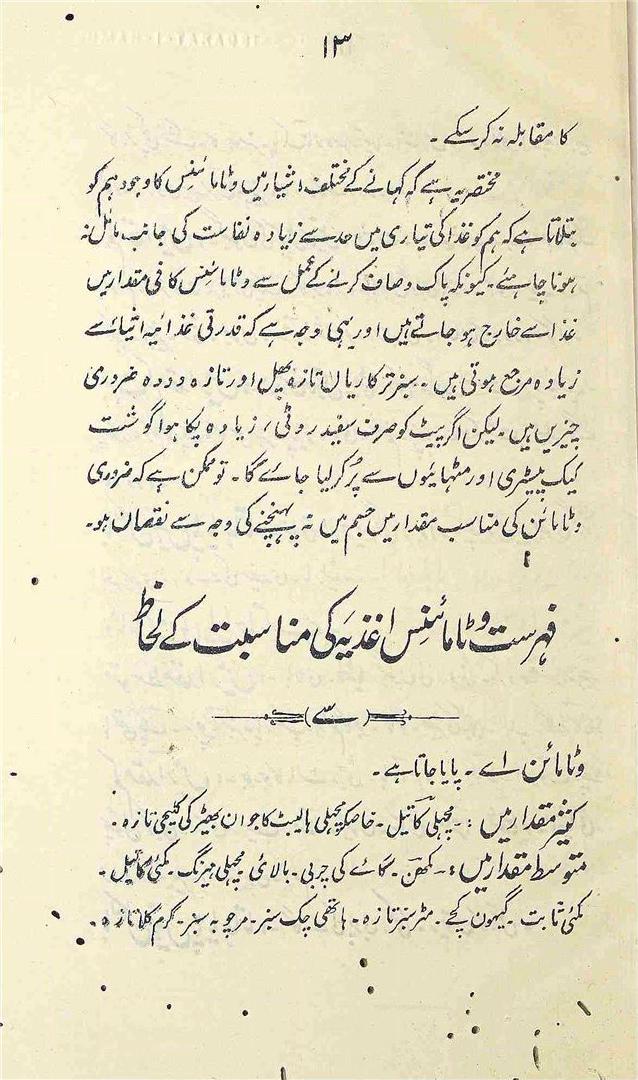 ۱۳
کا مقابلہ نہ کرسکے ۔
مختصر یہ ہے کہ کہانے کے مختلف اشیار میں وٹامائنس کا وجود ہم کو
بتلاتا ہے کہ ہم کو غذا کی تیاری میں حد سے زیادہ نفاست کی جانب مائل نہ
ہونا چاہئے ۔ کیونکہ پاک وصاف کرنے کے عمل سے وٹامائنس کافی مقدار میں
غذا سے خارج ہو جاتے ہیں اور یہی وجہ ہے کہ قدرتی غذائیہ اشیائسے
زیادہ مرجع ہوتی ہیں ۔ سبز ترکاریاں تازہ پھیل اور تازہ دودہ ضروری
چیزیں ہیں ۔ لیکن اگر پیٹ کو صرف سفید روٹی ، زیادہ پکا ہوا گوشت
کیک پیسٹری اور مٹہائیوں سے پُر کرلیا جائے گا ۔ تو ممکن ہے کہ ضروری
وٹامائن کی مناسب مقدار میں جسم میں نہ پہنچنے کی وجہ سے نقصان ہو ۔
فہرست وٹامائنس اغذیہ کی مناسبت کے لحاظ
سے
وٹامائن اے ۔ پایا جاتا ہے ۔
کثیر مقدار میں :۔ مچھلی کا تیل ۔ خاصکر مچھلی ہالیبٹ کا جوان بھیڑ کی کلیجی تازہ ۔
متوسط مقدار میں :۔ مکھن ۔ گائے کی چربی ۔ بالائی مچھلی ہیزنگ ۔ مکئی کا تیل ۔
مکئی ثابت ۔ گیہون کچے ۔ مٹر سبز تازہ ۔ ہاتھی چک سبز ۔ مرچوبہ سبز ۔ کرم کلا تازہ ۔